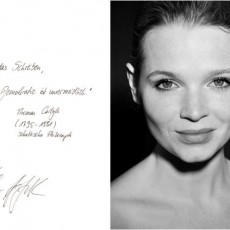 das Schreiben,
Demokratie ist unvermeidlich."
Thomas Carlyle
(1795-1881)
schottischer Philosoph